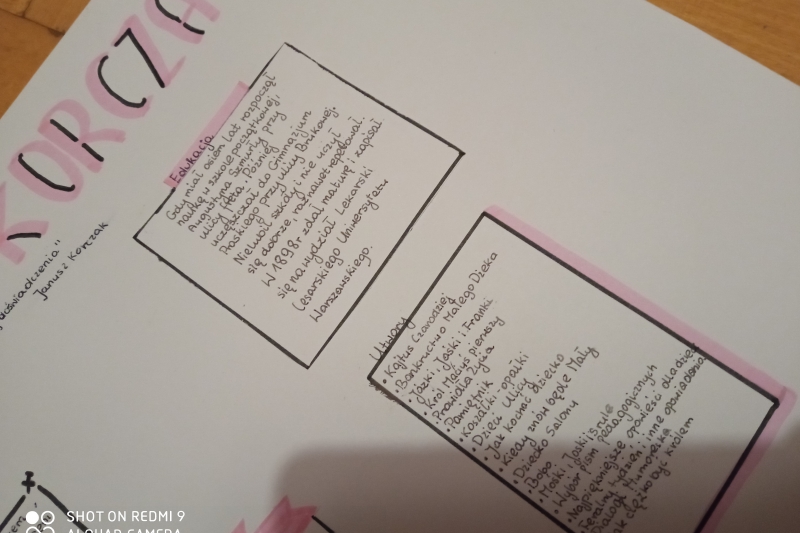 KORCZA
doświadczenia"
Janusz Korczak
Edukacja
Gdy miał osiem lat rozpoczął
naukę w szkole początkowej,
Augustyna Szmurły przy
ulicy Freta. Później
uczęszczał do Gimnazjum
Praskiego przy ulicy Brukowej.
Nielubił szkoły i nie uczył
się dobrze, raz nawet repetował.
W 1898r zdał maturę i zapisał
się na wydział Lekarski
Cesarskiego Uniwersytetu
Warszawskiego.
Utwory
• Kajtuś Czarodziej
• Bankructwo Małego Dżeka
• Jośki, Jaśki i Franki
• Król Maciuś pierwszy
• Prawidła Życia
• Pamiętnik
• Koszałki-opałki
• Dzieci Ulicy
• Jak kochać dziecko
• Kiedy znów będę Mały
• Dziecko Salonu
• Bobo
• Mośki, Joski i Srule
• Wybór pism pedagogicznych
• Najpiękniejsze opowieści dla dzieci
• Feralny tydzień i inne opowiadania
ciężko być królem
SHOT ON REDMI 9
AI QUAD CAMERA